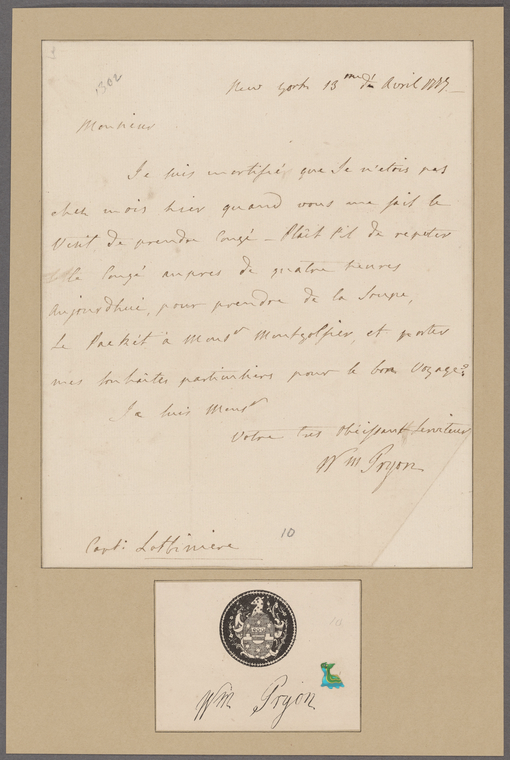 1302
New York 13me d'Avril 1787.
Monsieur
Je suis mortifié que Je n'etois pas
chez mois hier quand vous me fait le
Visit de prendre Congé – Plait Pil de repeter
le Congé aupres de quatre heures
Aujourdhui, pour prendre de la Soupe,
Le Packét à Monsr Montgolfier, et porter
mes Souhaites particuliers pour le bon Voyage.
Je suis Monsr
Votre tres Obeissant Serviteur
Wm Pryon
Capt: Lotbiniere
10
Wm Pryon